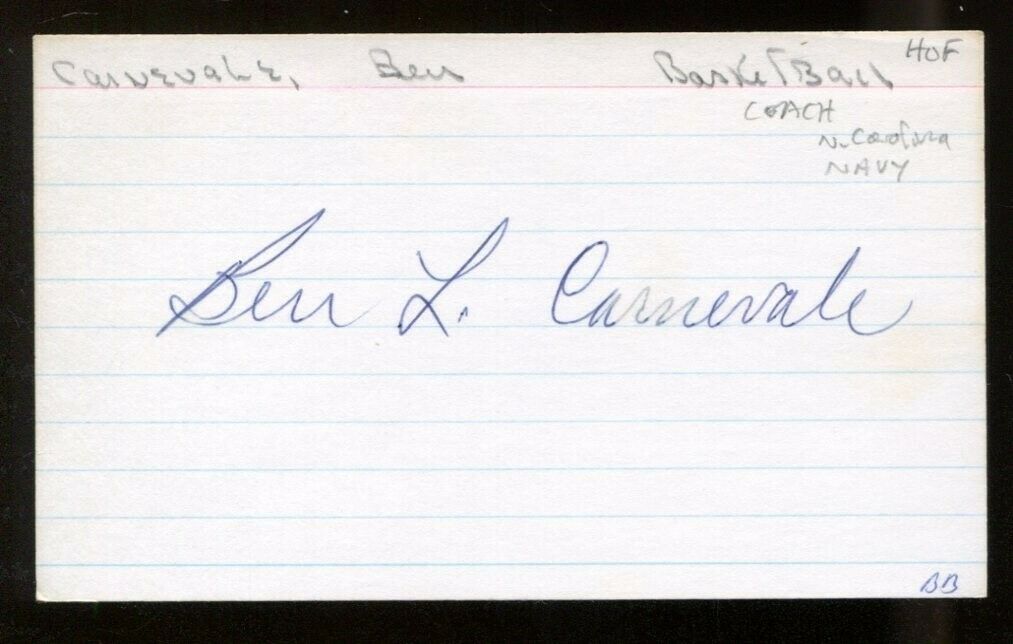 Carnevale, Ben BasketBall HOF
COACH
N. Carolina
NAVY
Ben L. Carnevale
BB